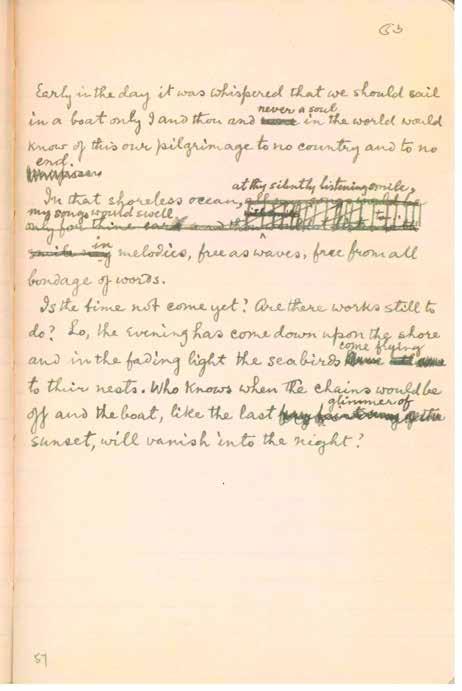 63
Early in the day it was whispered that we should sail
in a boat only I and thou and never a soul in the world would
know of this our pilgrimage to no country and to no
end.
In that shoreless ocean, at thy silently listening smile,
my songs would swell
only for thine
in melodies, free as waves, free from all
bondage of words.
Is the time not come yet? Are there works still to
do? Lo, the evening has come down upon the shore
and in the fading light the seabirds come flying
to their nests. Who knows when the chains would be
off and the boat, like the last glimmer of
sunset, will vanish into the night?
57